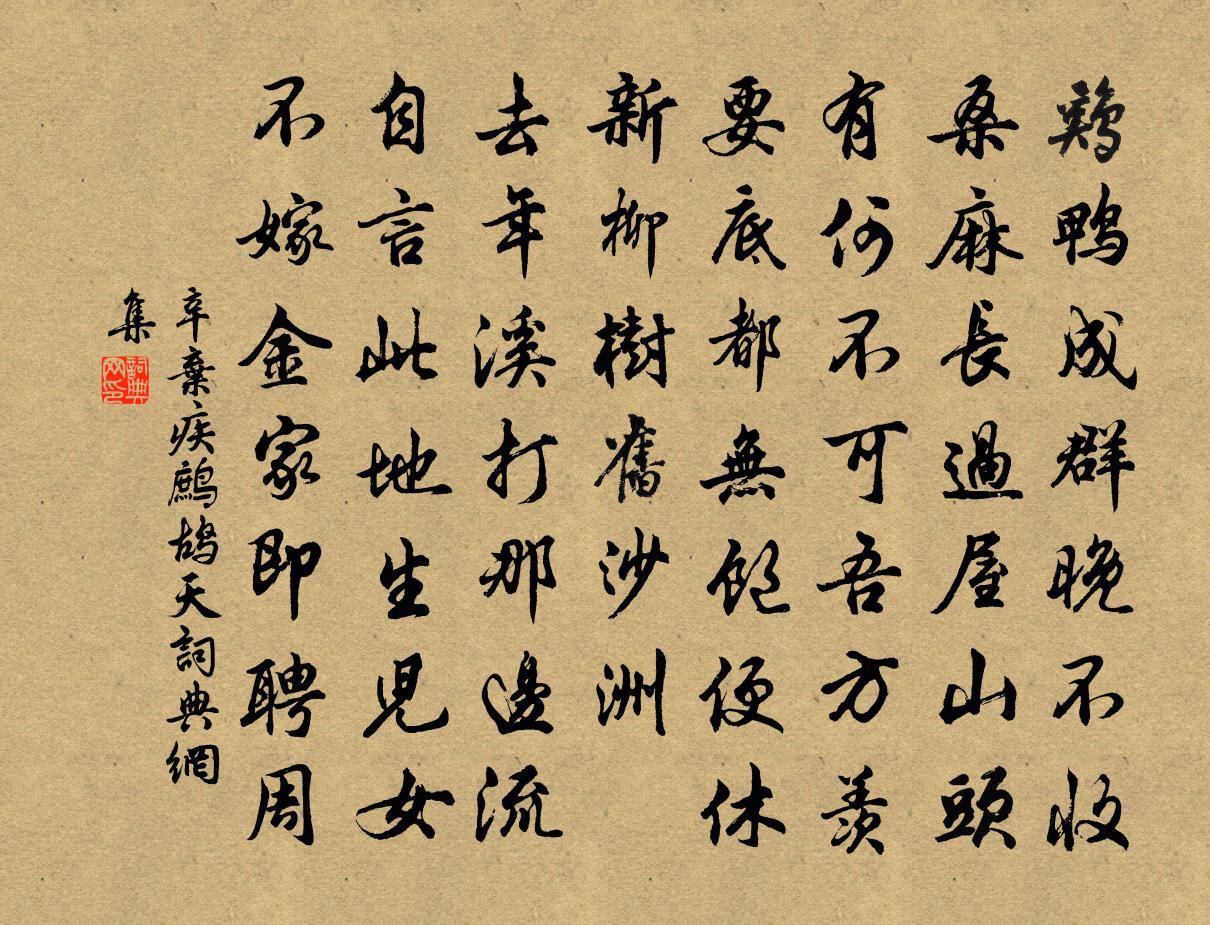 鷄鴨成群晚不收
桑麻長過屋山頭
有何不可吾方羨
要底都無飽便休
新柳樹舊沙洲
去年溪打那邊流
自言此地生兒女
不嫁金家即聘周
辛棄疾鷓鴣天詞典網
集
詞典网印